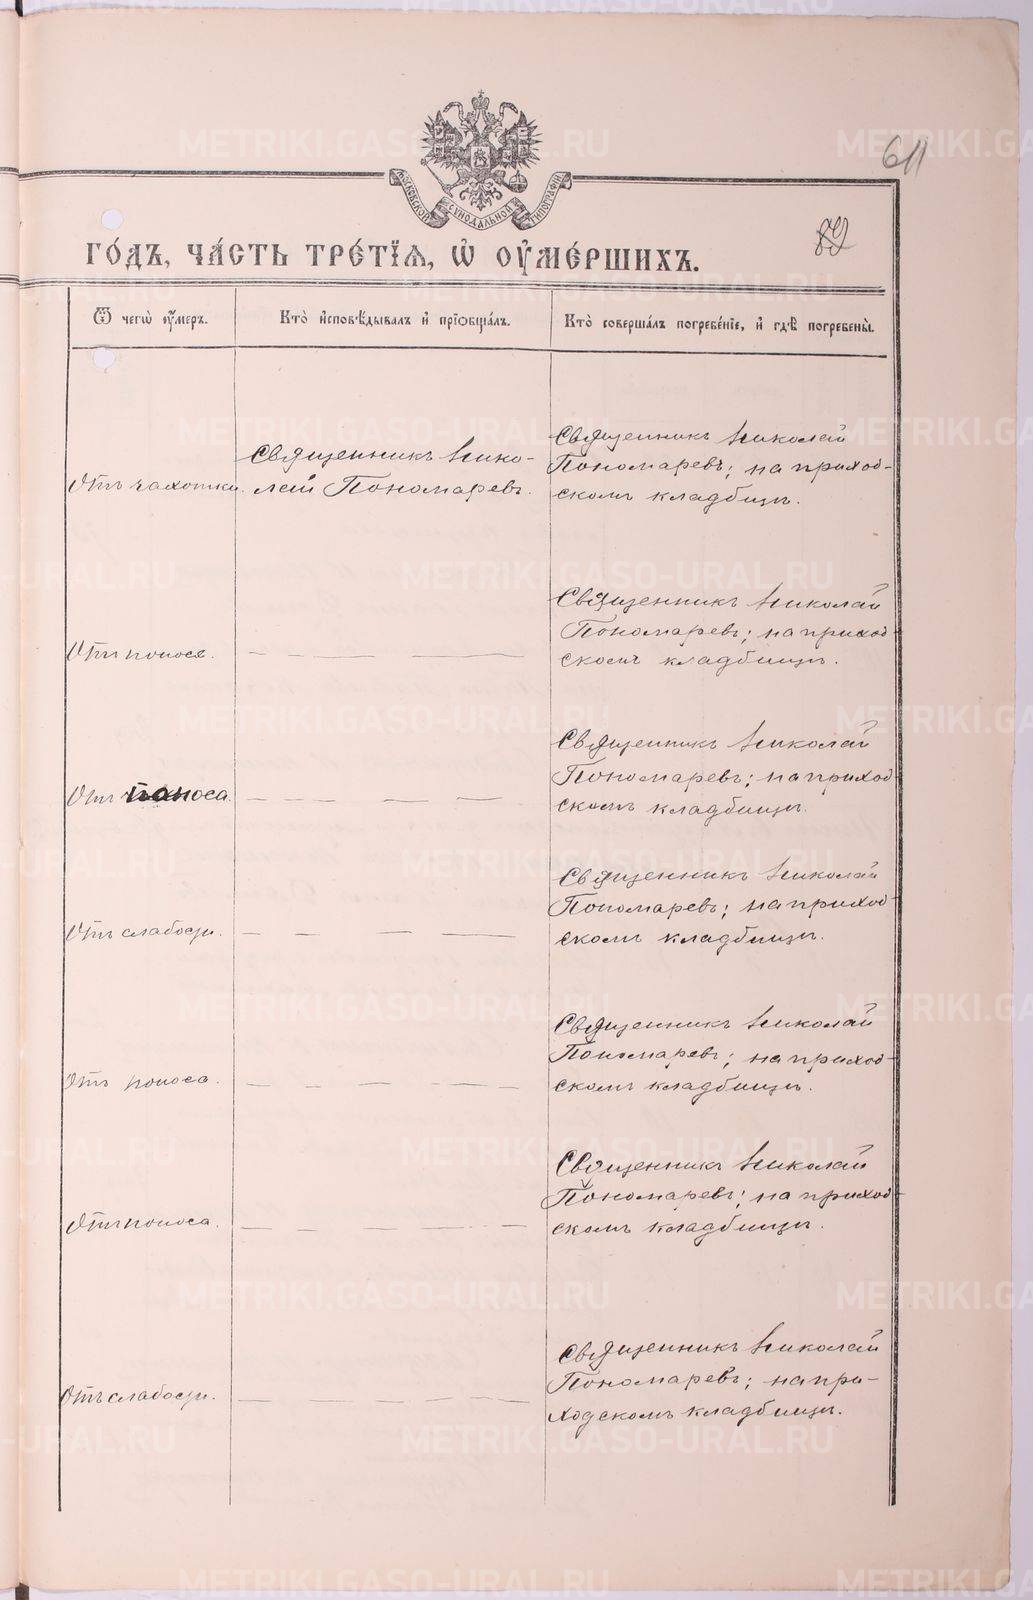 611
МОСКОВСКОЙ СУНОДАЛЬНОЙ ТИПОГРАФІИ
ГО́ДЪ, ЧА́СТЬ ТРЕ́ТІѦ, Ѡ҆ ОУ҆МЕ́РШИХЪ.
Ѿ чегѡ̀ ᲂу҆́меръ.
Кто̀ и҆сповѣ́дывалъ и҆ прїѡбща́лъ.
Кто̀ соверша́лъ погребе́нїе, и҆ гдѣ̀ погребены̀.
Отъ чахотки.
Священникъ Нико-
лай Пономаревъ.
Священникъ Николай
Пономаревъ; на приход-
скомъ кладбищѣ.
Отъ поноса.
Священникъ Николай
Пономаревъ; на приход-
скомъ кладбищѣ.
Отъ поноса.
Священникъ Николай
Пономаревъ; на приход-
скомъ кладбищѣ.
Отъ слабости.
Священникъ Николай
Пономаревъ; на приход-
скомъ кладбищѣ.
Отъ поноса.
Священникъ Николай
Пономаревъ; на приход-
скомъ кладбищѣ.
Отъ поноса.
Священникъ Николай
Пономаревъ; на приход-
скомъ кладбищѣ.
Отъ слабости.
Священникъ Николай
Пономаревъ; на при-
ходскомъ кладбищѣ.
METRIKI.GASO-URAL.RU